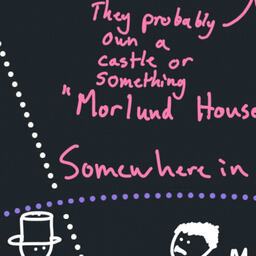 They probably
own a
castle or
something
"Morlund House
Somewhere in